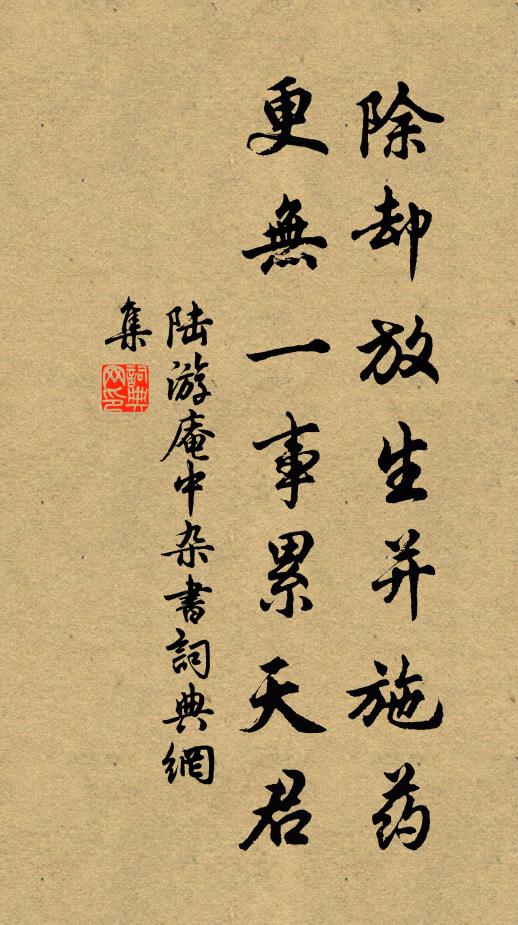 除却放生并施药
更無一事累天君
陆游庵中杂書詞典網
集
詞典
网印